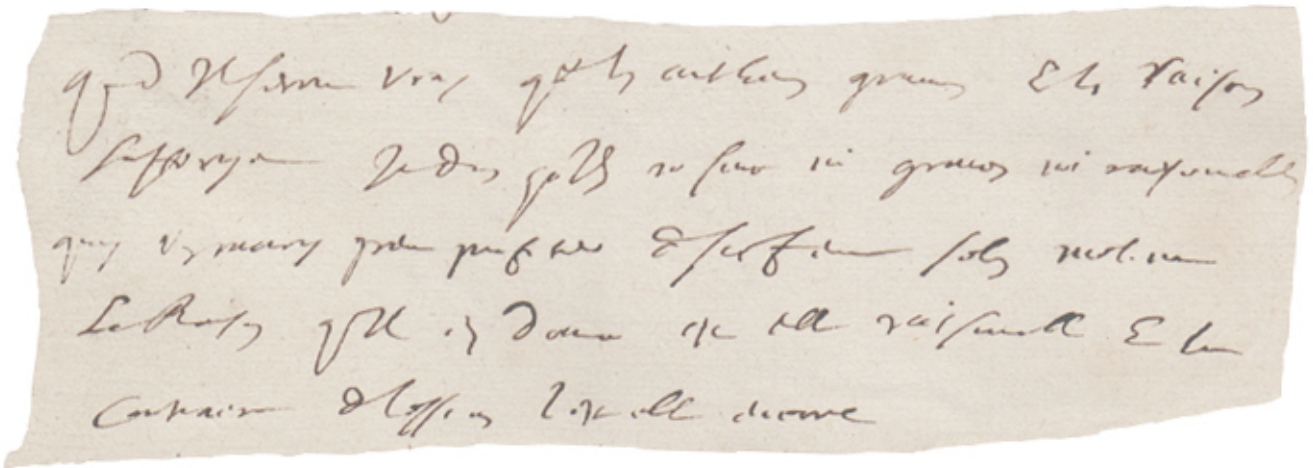 quand Il seroit vray que les autheurs graves & les raisons
suffiroyent Je dis quils ne sont ni graves ni raisonnables
quoy un mary peut profiter de sa femme selon molina
La Raison quil en donne est elle raisonnable & le
Contraire de lessius lest elle encore